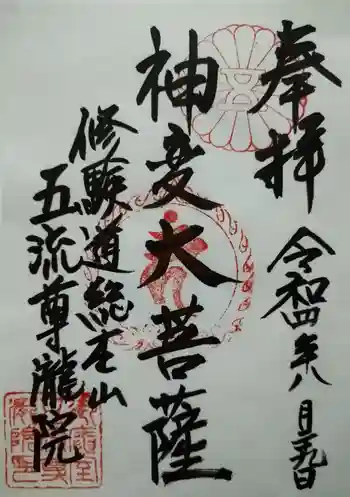 奉拝
令和四年八月
神変大菩薩
修験道総本山
五流尊瀧院